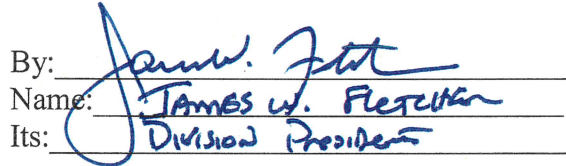 By: James W. Fletcher
Name: JAMES W. FLETCHER
Its: DIVISION PRESIDENT